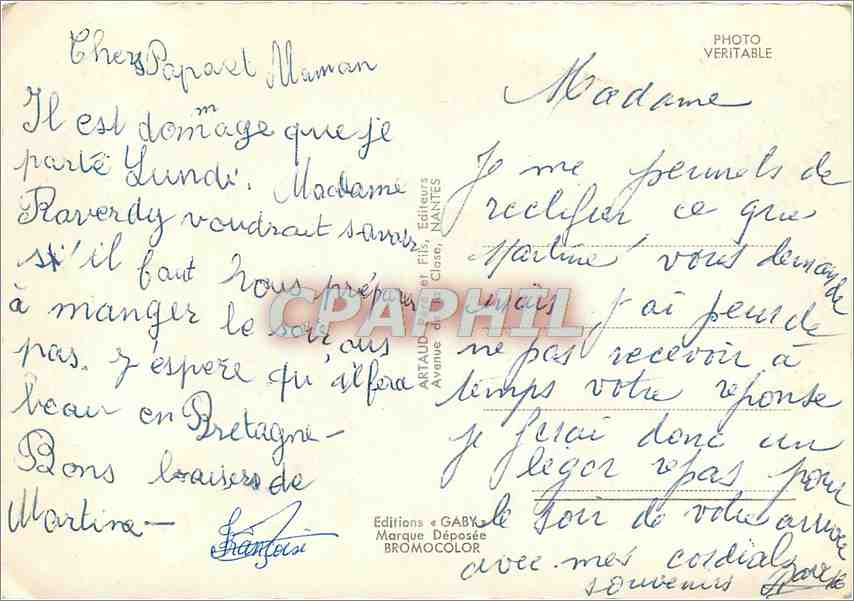 Chers Papa et Maman
Il est dommage que je
parte Lundi. Madame
Raverdy voudrait savoir
s'il faut nous préparer
à manger le soir ous
pas. J'éspere qu'il fera
beau en Bretagne-
Bons baisers de
Martine-
Françoise
PHOTO
VERITABLE
ARTAUD Père et Fils, Editeurs
Avenue de la Close, NANTES
CPAPHIL
Editions « GABY »
Marque Déposée
BROMOCOLOR
Madame
Je me permets de
rectifier ce que
Martine vous demande
mais j'ai peur de
ne pas recevoir à
temps votre reponse
je ferai donc un
léger repas pour
le soir de votre arrivée
avec mes cordials
souvenirs